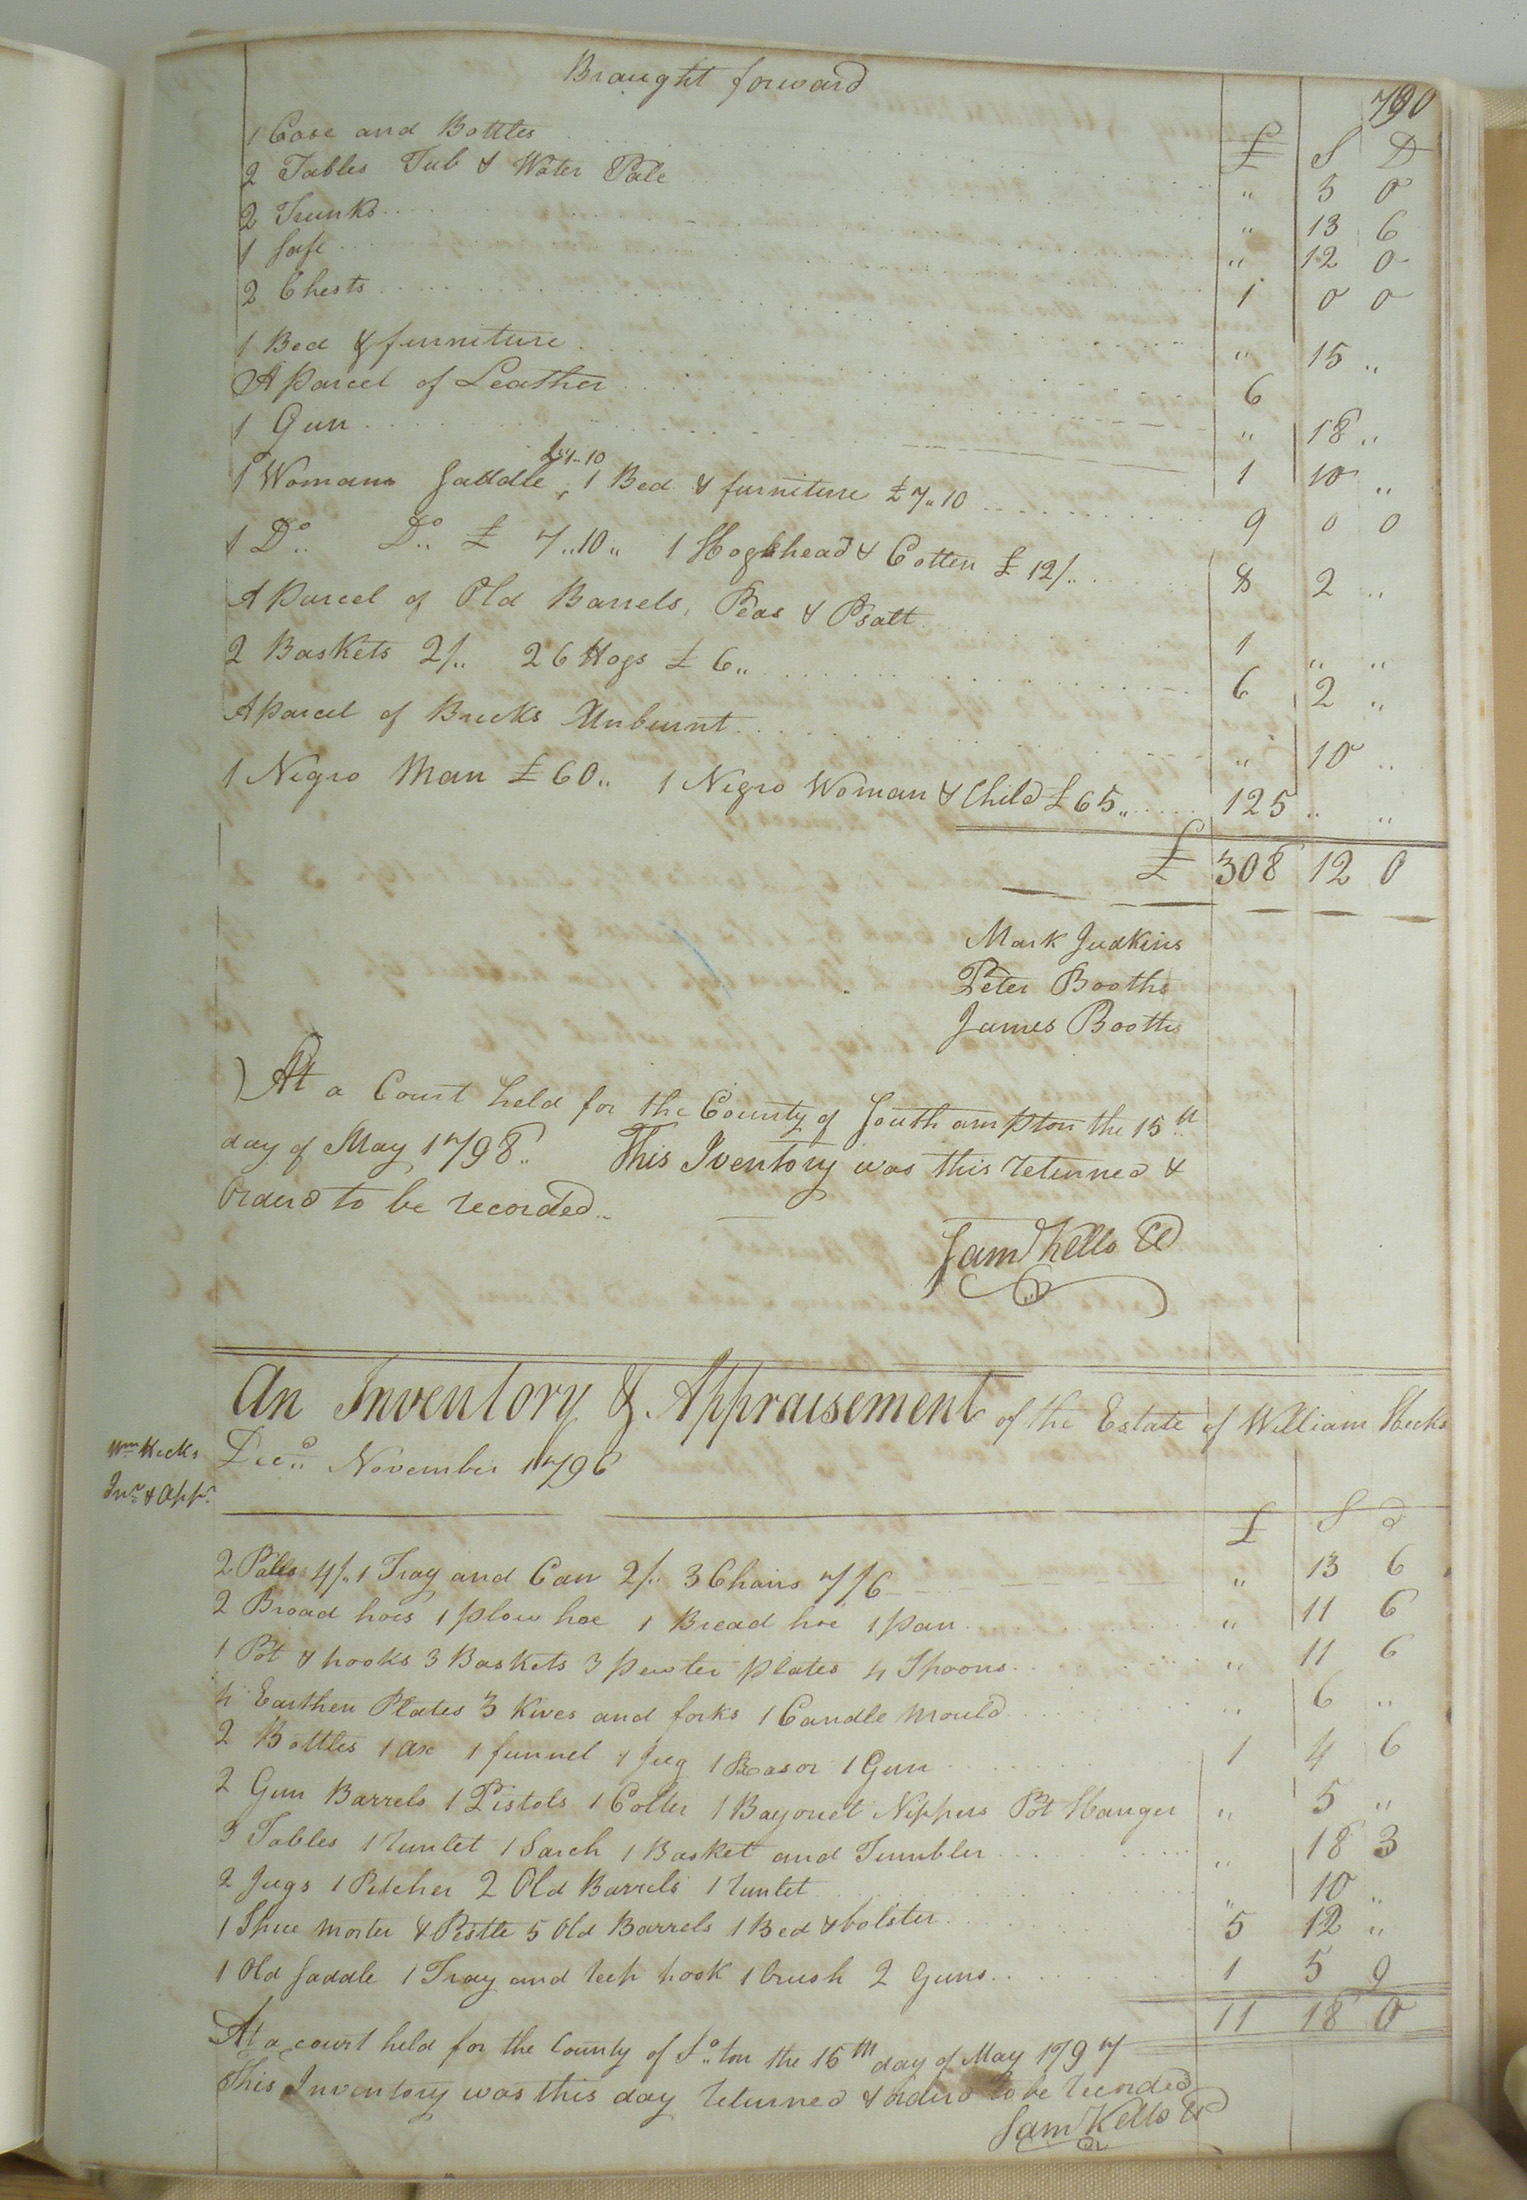 Braught forward
790
£ S D
1 Case and Bottles " 5 0
2 Tables Tub & Water Pale " 13 6
2 Trunks " 12 0
1 Safe 1 0 0
2 Chests " 15 "
1 Bed & furniture 6
A Parcel of Leather " 18 "
1 Gun 1 10 "
1 Womans Saddle, 1 Bed & furniture £7..10 9 0 0
1 Do.. Do.. £ 7..10.. 1 Hogshead & Cotten £ 12/.. 8 2 "
A Parcel of Old Barrels, Peas & Psalt 1 " "
2 Baskets 2/.. 26 Hogs £ 6.. 6 2 "
A Parcel of Bricks Unburnt " 10 "
1 Negro Man £60.. 1 Negro Woman & Child £65.. 125 " "
£ 308 12 0
Mark Judkins
Peter Booths
James Booths
At a Court held for the County of Southampton the 15th
day of May 1798.. This Iventory was this returned &
Orderd to be recorded..
Saml Kello CC
An Inventory & Appraisement of the Estate of William Hicks
Wm Hicks
Decd November 1796
Inv & App.
£ S d
2 Pales 4/. 1 Tray and Can 2/.. 3 Chairs 7/6 " 13 6
2 Broad hoes 1 plow hoe 1 Bread hoe 1 pan " 11 6
1 Pot & hooks 3 Baskets 3 pewter plates 4 Spoons " 11 6
4 Earthen Plates 3 Kives and forks 1 Candle mould " 6 "
2 Bottles 1 ax 1 funnel 1 Jug 1 Rasor 1 Gun 1 4 6
2 Gun Barrels 1 Pistols 1 Colter 1 Bayonet Nippers Pot Hanger " 5 "
3 Tables 1 runlet 1 Sarch 1 Basket and Tumbler " 18 3
2 Jugs 1 Pitcher 2 Old Barrels 1 runlet " 10 "
1 Spice morter & Pestle 5 Old Barrels 1 Bed & bolster 5 12 "
1 Old Saddle 1 Tray and reep hook 1 brush 2 Guns 1 5 9
11 18 0
At a court held for the County of So..ton the 15th day of May 1797
This Inventory was this day returned & orderd to be recorded
Saml Kello CC